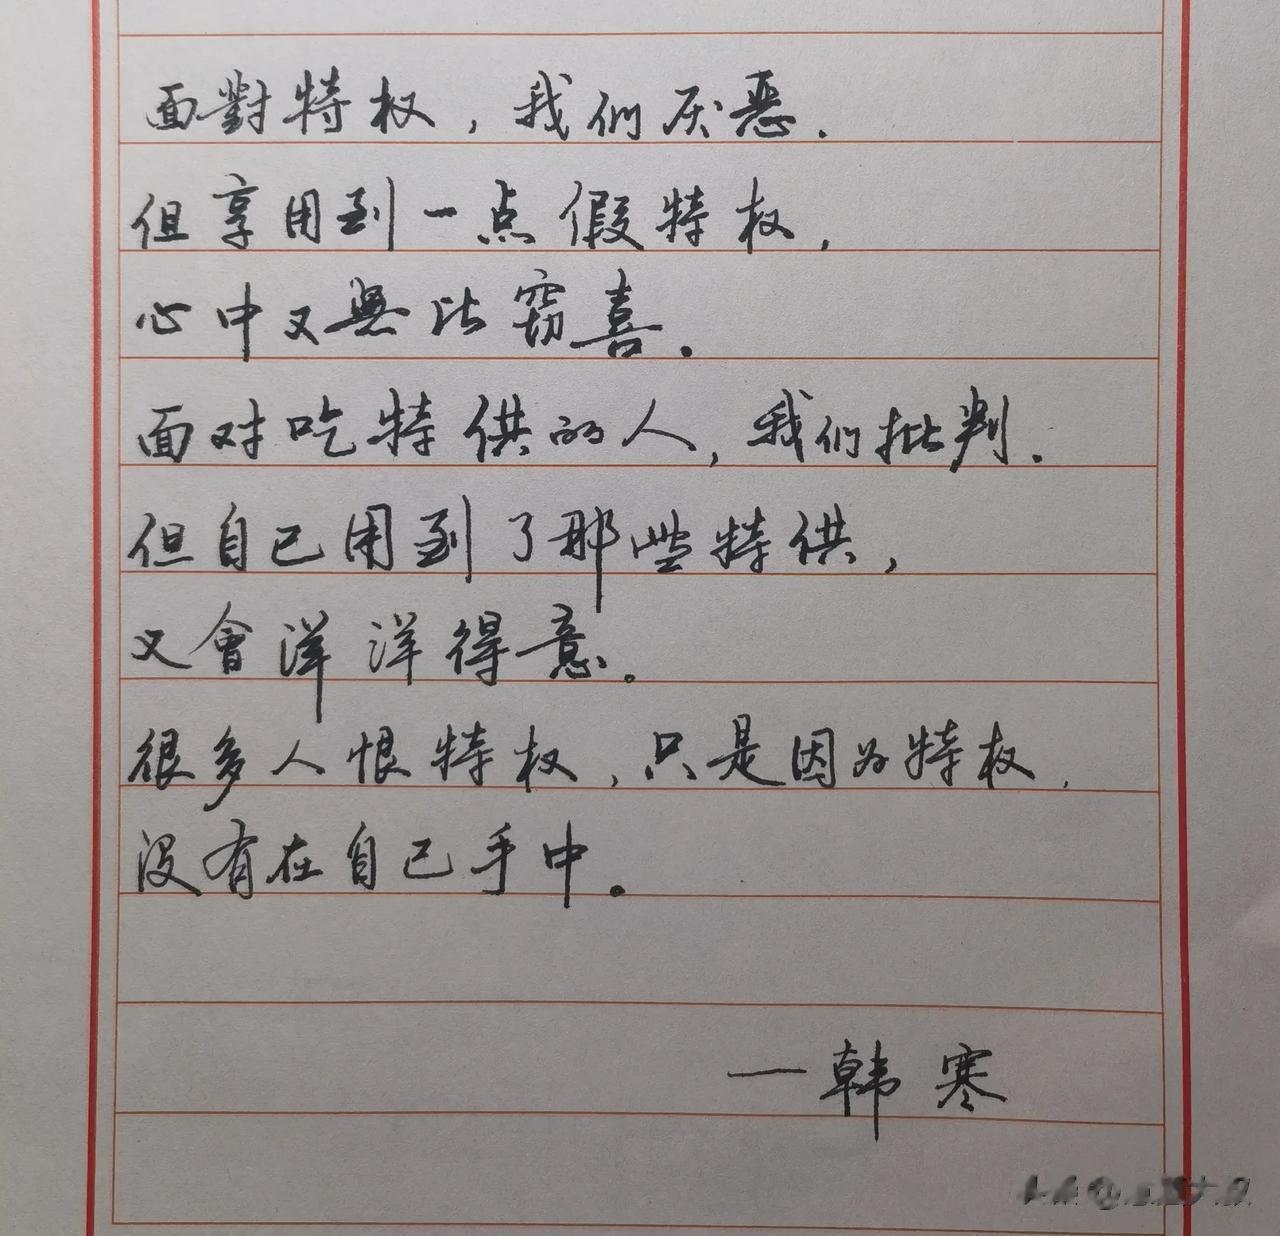 面對特权，我们厌恶．
但享用到一点假特权，
心中又無比窃喜．
面对吃特供的人，我们批判．
但自己用到了那些特供，
又會洋洋得意．
很多人恨特权，只是因为特权，
没有在自己手中．
—韩寒